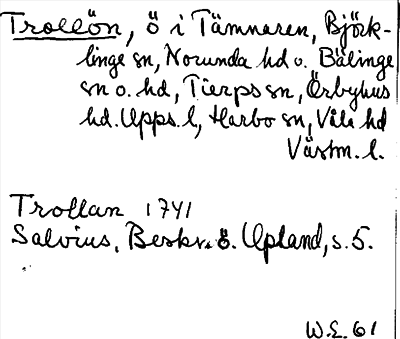 Trollön, ö i Tämnaren, Björk-
linge sn, Norunda hd o. Bälinge
sn o. hd, Tierps sn, Örbyhus
hd. Upps. l, Harbo sn, Våla hd
Västm. l.
Trollan 1741
Salvius, Beskr. ö. Upland, s. 5.
W.E. 61